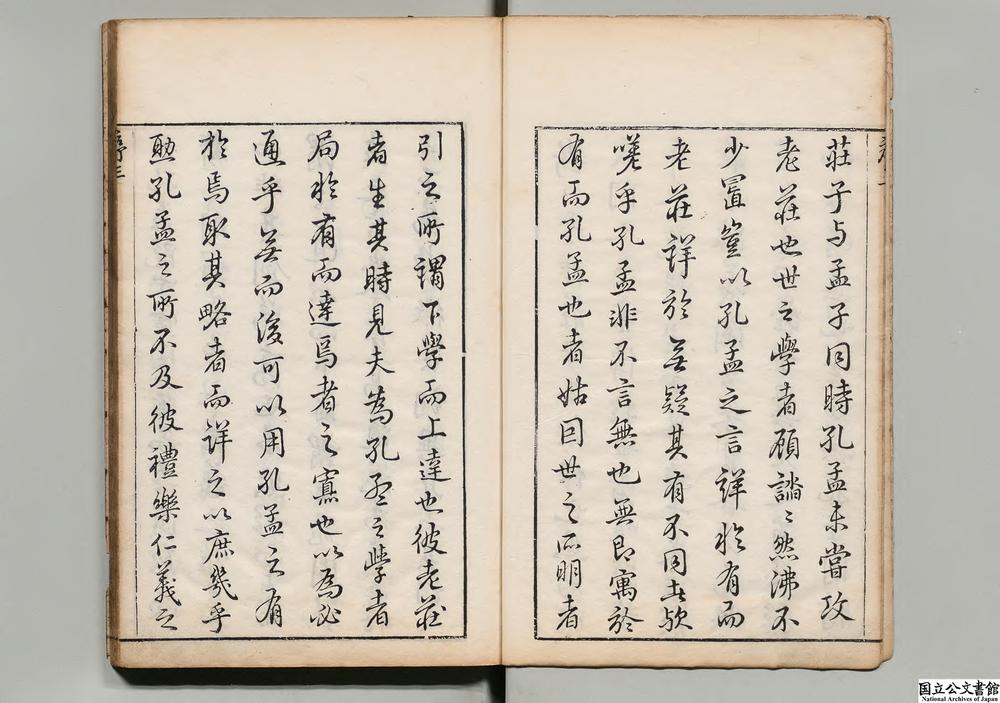 莊子与孟子同時孔孟未嘗攻
老莊也世之學者顧譊〻然沸不
少置豈以孔孟之言詳於有而
老莊詳於無疑其有不同者欤
嗟乎孔孟非不言無也無即寓於
有而孔孟也者姑因世之所明者
引之所謂下學而上達也彼老莊
者生其時見夫為孔孟之學者
局於有而達焉者之寡也以為必
通乎無而後可以用孔孟之有
於焉取其略者而詳之以庶幾乎
助孔孟之所不及彼禮樂仁義之
序三
国立公文書館
National Archives of Japan